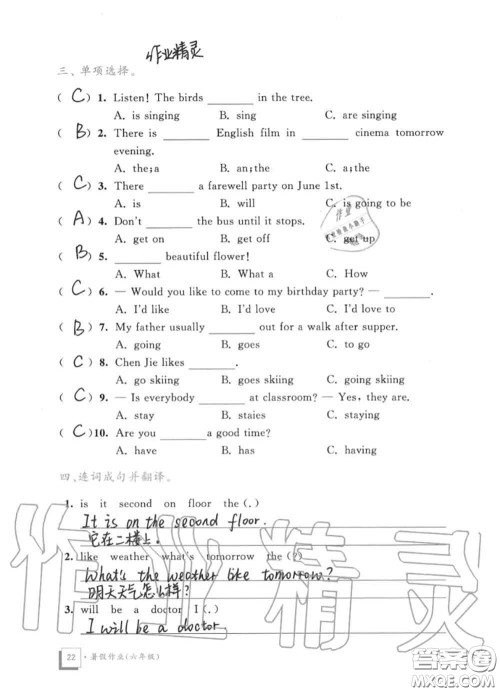 作业精灵
三、单项选择。
( C ) 1. Listen! The birds ________ in the tree.
A. is singing B. sing C. are singing
( B ) 2. There is ________ English film in ________ cinema tomorrow
evening.
A. the;a B. an;the C. a;the
( C ) 3. There ________ a farewell party on June 1st.
A. is B. will C. is going to be
( A ) 4. Don't ________ the bus until it stops.
A. get on B. get off C. get up
( B ) 5. ________ beautiful flower!
A. What B. What a C. How
( C ) 6. — Would you like to come to my birthday party? — ________.
A. I'd like B. I'd love C. I'd love to
( B ) 7. My father usually ________ out for a walk after supper.
A. going B. goes C. to go
( C ) 8. Chen Jie likes ________.
A. go skiing B. goes skiing C. going skiing
( C ) 9. — Is everybody ________ at classroom? — Yes, they are.
A. stay B. staies C. staying
( C ) 10. Are you ________ a good time?
A. have B. has C. having
四、连词成句并翻译。
1. is it second on floor the(.)
It is on the second floor.
它在二楼上。
2. like weather what's tomorrow the(?)
What's the weather like tomorrow?
明天天气怎么样?
3. will be a doctor I(.)
I will be a doctor.
22 · 暑假作业(六年级)
作业精灵